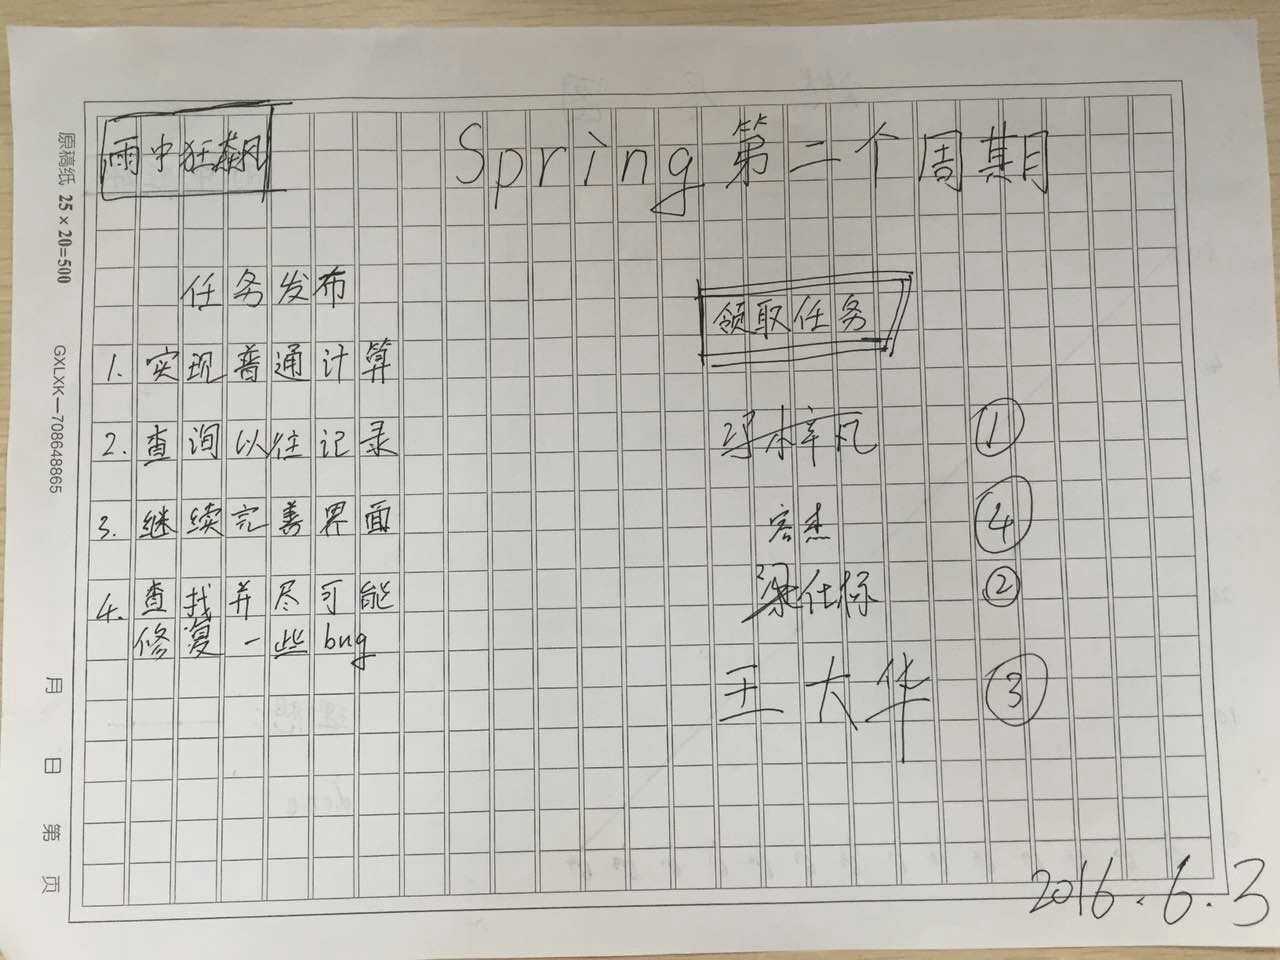 雨中狂飙
Spring 第二个周期
任务发布
1. 实现普通计算
2. 查询以往记录
3. 继续完善界面
4. 查找并尽可能
修复一些bug
领取任务
①
宏杰 ④
梁仕标 ②
王大华 ③
2016.6.3
原稿纸 25×20=500
GXLXK—708648865
月 日 第 页